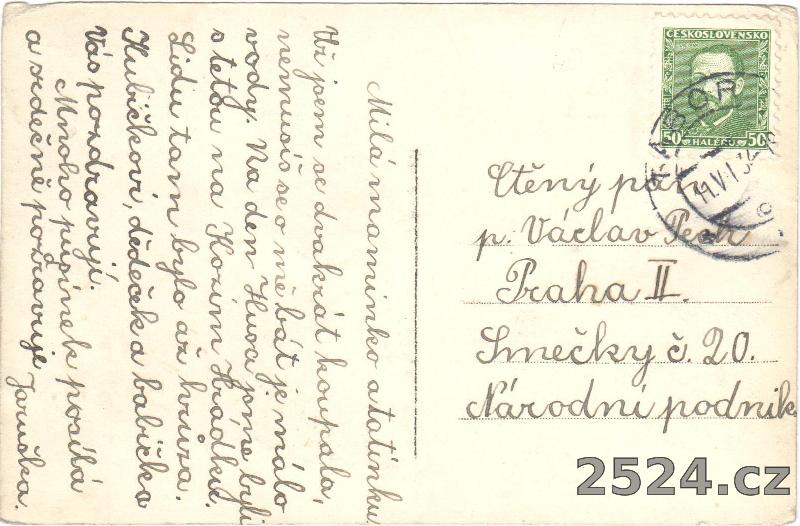 Milá maminko a tatínku.
Už jsem se dvakrát koupala,
nemusíš se o mě bát je málo
vody. Na den Husi jsme byli
s tetou na Kozím Hrádku.
Lidu tam bylo až hrůza.
Kubičkovi, dědeček a babička
Vás pozdravují.
Mnoho pusinek posílá
a srdečně pozdravuje
Jaruška.
ČESKOSLOVENSKO
50 HALÉŘŮ 50
TÁBOR
11.VII.34
Ctěný pan
p. Václav Pech
Praha II.
Smečky č. 20.
Národní podnik
2524.cz